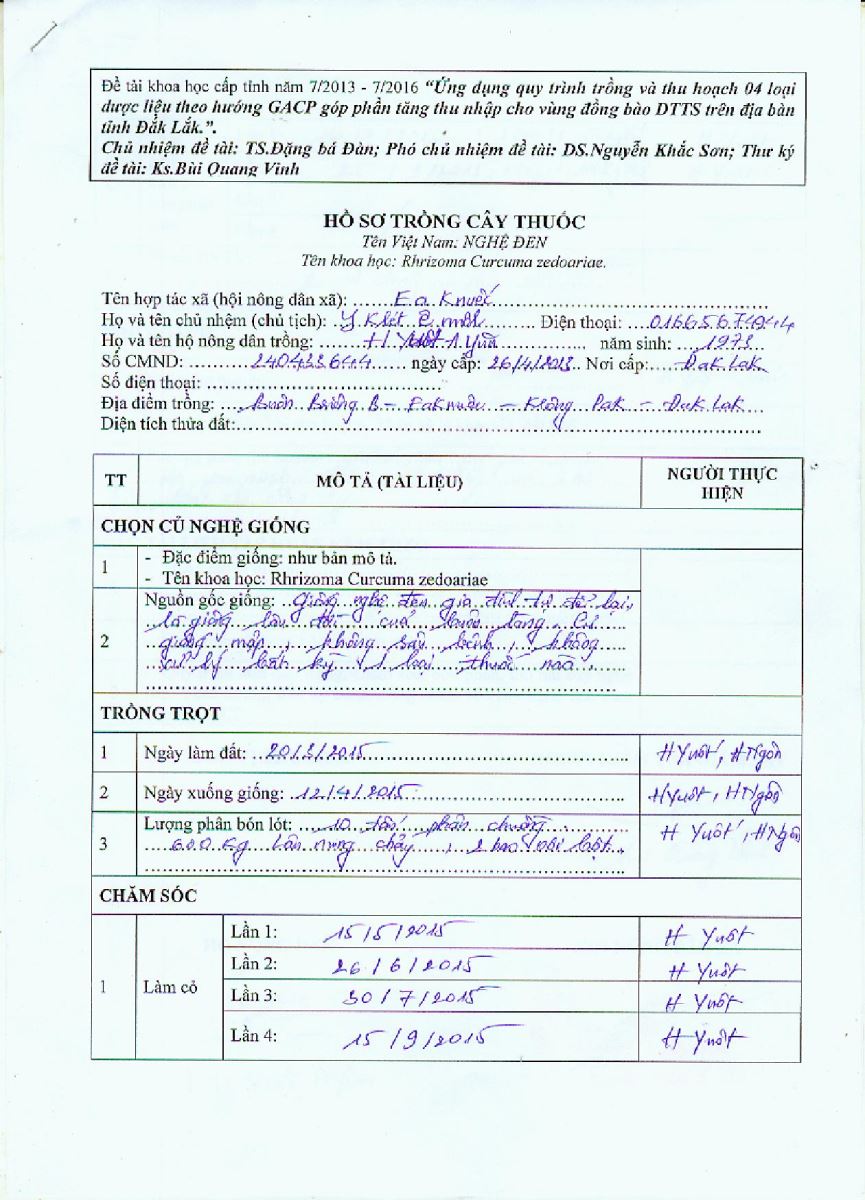 Đề tài khoa học cấp tỉnh năm 7/2013 - 7/2016 “Ứng dụng quy trình trồng và thu hoạch 04 loại
dược liệu theo hướng GACP góp phần tăng thu nhập cho vùng đồng bào DTTS trên địa bàn
tỉnh Đắk Lắk.”.
Chủ nhiệm đề tài: TS.Đặng bá Đàn; Phó chủ nhiệm đề tài: DS.Nguyễn Khắc Sơn; Thư ký
đề tài: Ks.Bùi Quang Vinh
HỒ SƠ TRỒNG CÂY THUỐC
Tên Việt Nam: NGHỆ ĐEN
Tên khoa học: Rhrizoma Curcuma zedoariae.
Tên hợp tác xã (hội nông dân xã): Ea Knuếc
Họ và tên chủ nhệm (chủ tịch): Điện thoại:
Họ và tên hộ nông dân trồng: H Yuôt năm sinh: 1973
Số CMND: 240433644 ngày cấp: 26/4/2013 Nơi cấp: Đak Lak
Số điện thoại:
Địa điểm trồng: Buôn B – Eaknuếc – Krông Pak – Đak Lak
Diện tích thửa đất:
TT MÔ TẢ (TÀI LIỆU) NGƯỜI THỰC
HIỆN
CHỌN CỦ NGHỆ GIỐNG
1 - Đặc điểm giống: như bản mô tả.
- Tên khoa học: Rhrizoma Curcuma zedoariae
Nguồn gốc giống: Giống nghệ đen gia đình tự để lại,
là giống lâu đời của buôn làng. Củ
2 giống mập, không sâu bệnh, không
xử lý bất kỳ 1 loại thuốc nào.
TRỒNG TRỌT
1 Ngày làm đất: 20/3/2015 H Yuôt, H Ngôn
2 Ngày xuống giống: 12/4/2015 H Yuôt, H Ngôn
Lượng phân bón lót: 10 tấn phân chuồng. H Yuôt, H Ngôn
3 600 Kg lân nung chảy, 2 bao vôi bột.
CHĂM SÓC
1 Làm cỏ
Lần 1: 15/5/2015 H Yuôt
Lần 2: 26/6/2015 H Yuôt
Lần 3: 30/7/2015 H Yuôt
Lần 4: 15/9/2015 H Yuôt